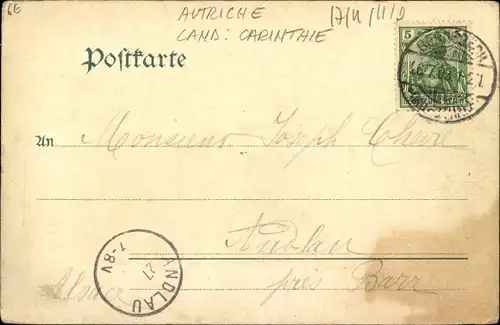 6E
AUTRICHE
LAND: CARINTHIE
Postkarte
5
An Monsieur Joseph
Andlau
près Barr
Alsace
ANDLAU
27
7-8V